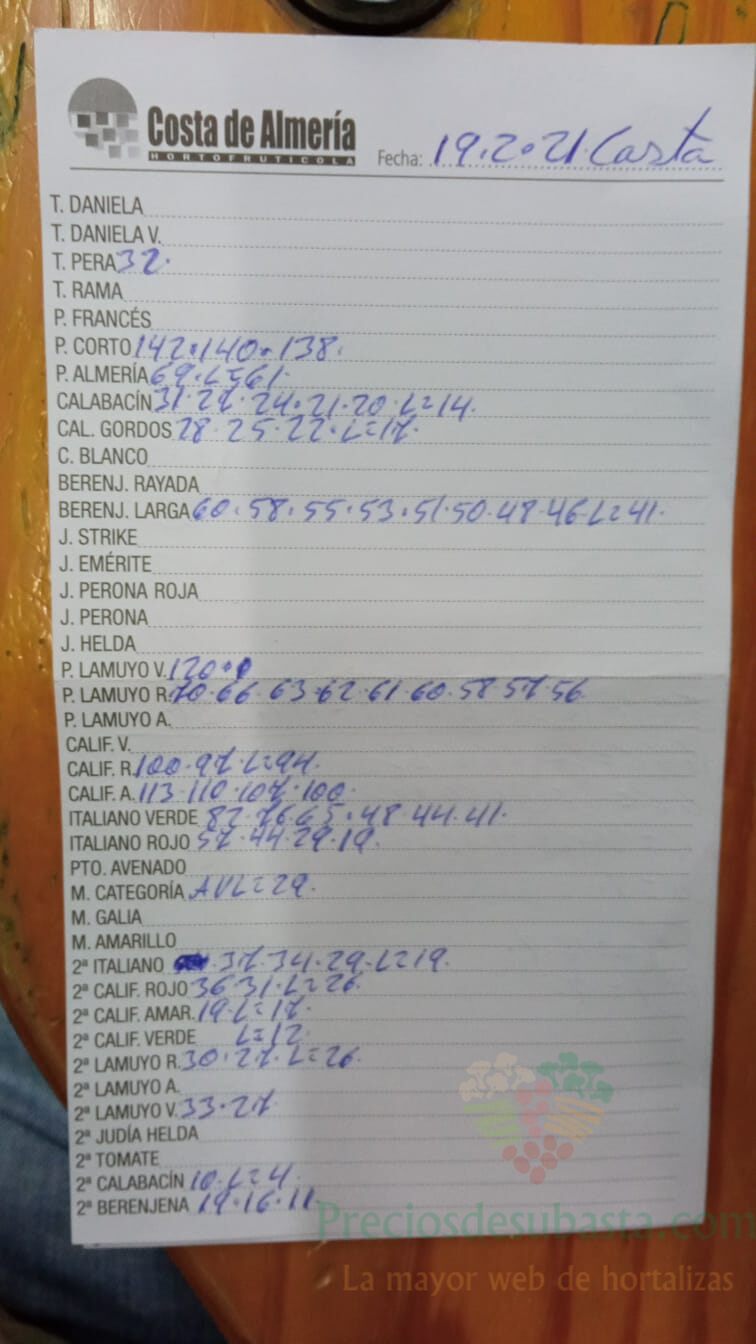 Costa de Almería
HORTOFRUTICOLA
Fecha: 19.2.21. Costa
T. DANIELA
T. DANIELA V.
T. PERA 32.
T. RAMA
P. FRANCÉS
P. CORTO 142.140.138.
P. ALMERÍA 69.L=61.
CALABACÍN 31.27.24.21.20.L=14.
CAL. GORDOS 28.25.22.L=17.
C. BLANCO
BERENJ. RAYADA
BERENJ. LARGA 60.58.55.53.51.50.48.46.L=41.
J. STRIKE
J. EMÉRITE
J. PERONA ROJA
J. PERONA
J. HELDA
P. LAMUYO V. 120.
P. LAMUYO R. 70.66.63.62.61.60.58.57.56
P. LAMUYO A.
CALIF. V.
CALIF. R. 100.97.L=94.
CALIF. A. 113.110.107.100.
ITALIANO VERDE 82.76.65.48.44.41.
ITALIANO ROJO 57.44.29.19.
PTO. AVENADO
M. CATEGORÍA AVL=29.
M. GALIA
M. AMARILLO
2ª ITALIANO 37.34.29.L=19.
2ª CALIF. ROJO 36.31.L=26.
2ª CALIF. AMAR. 19.L=17.
2ª CALIF. VERDE L=12.
2ª LAMUYO R. 30.27.L=26.
2ª LAMUYO A.
2ª LAMUYO V. 33.27.
2ª JUDÍA HELDA
2ª TOMATE
2ª CALABACÍN 10.L=4.
2ª BERENJENA 19.16.11.
Preciosdesubasta.com
La mayor web de hortalizas